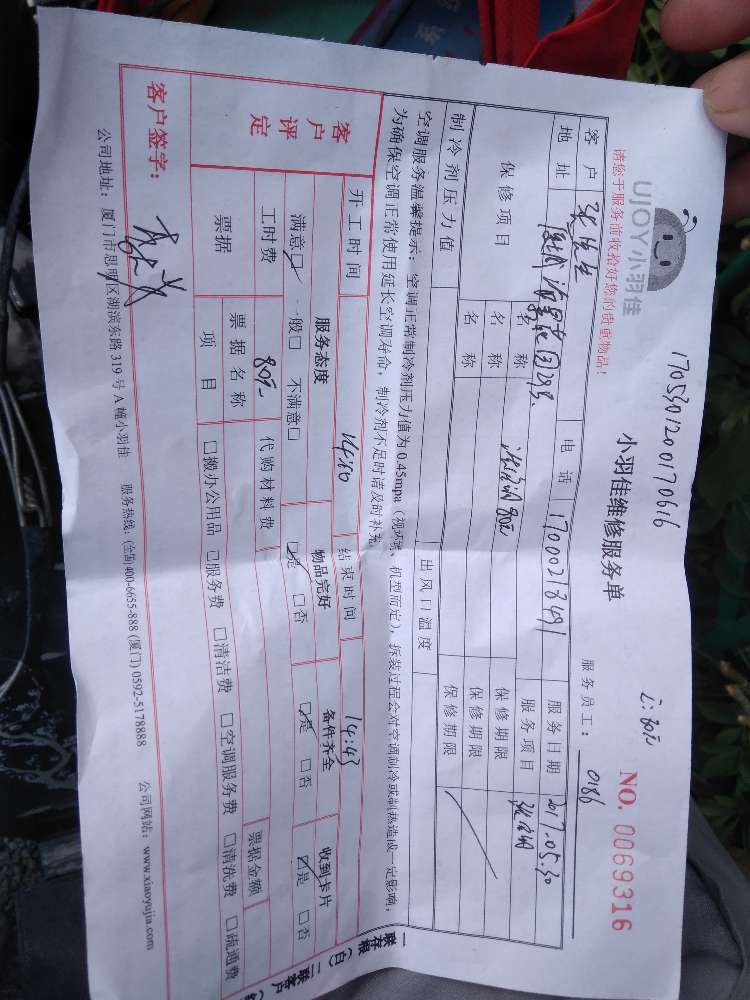 1705301200170616
UJOY小羽佳
小羽佳维修服务单
NO. 0069316
请您于服务前收拾好您的贵重物品!
服务员工: 0186
客户 张先生 电话 17000218491 服务日期 2017.05.30
地址 29号 服务项目
保修项目 名称 80元 保修期限
名称 保修期限
名称 保修期限
制冷剂压力值 出风口温度
空调服务温馨提示:空调正常制冷剂压力值为0.45mpa(视环境、机型而定),拆装过程会对空调制冷或制热造成一定影响,
为确保空调正常使用延长空调寿命,制冷剂不足时请及时补充。
客户评定 开工时间 结束时间 14:43
服务态度 物品完好 备件齐全 收到卡片
满意☑ 一般□ 不满意□ ☑是 □否 ☑是 □否 ☑是 □否
工时费 80元 代购材料费
票据 票据名称 票据金额
项目 □搬办公用品 □服务费 □清洁费 □空调服务费 □清洗费 □疏通费
客户签字:
公司地址:厦门市思明区湖滨东路319号A幢小羽佳 服务热线:(全国)400-6655-888 (厦门) 0592-5178888 公司网站:www.xiaoyujia.com
一联存根(白) 二联客户